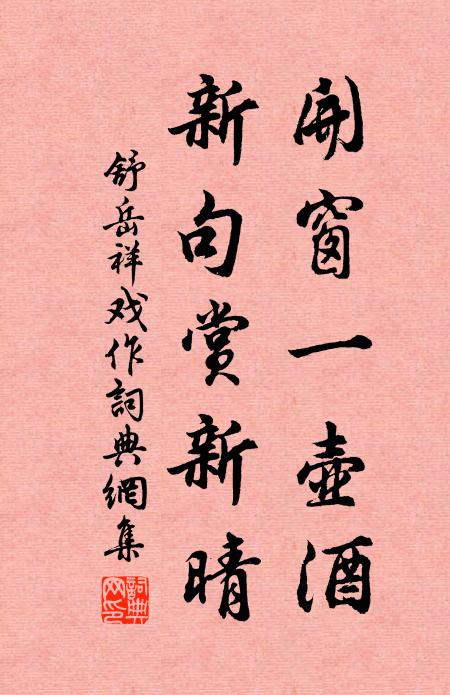 開窗一壺酒
新句賞新晴
舒岳祥戏作詞典網集
詞典網印